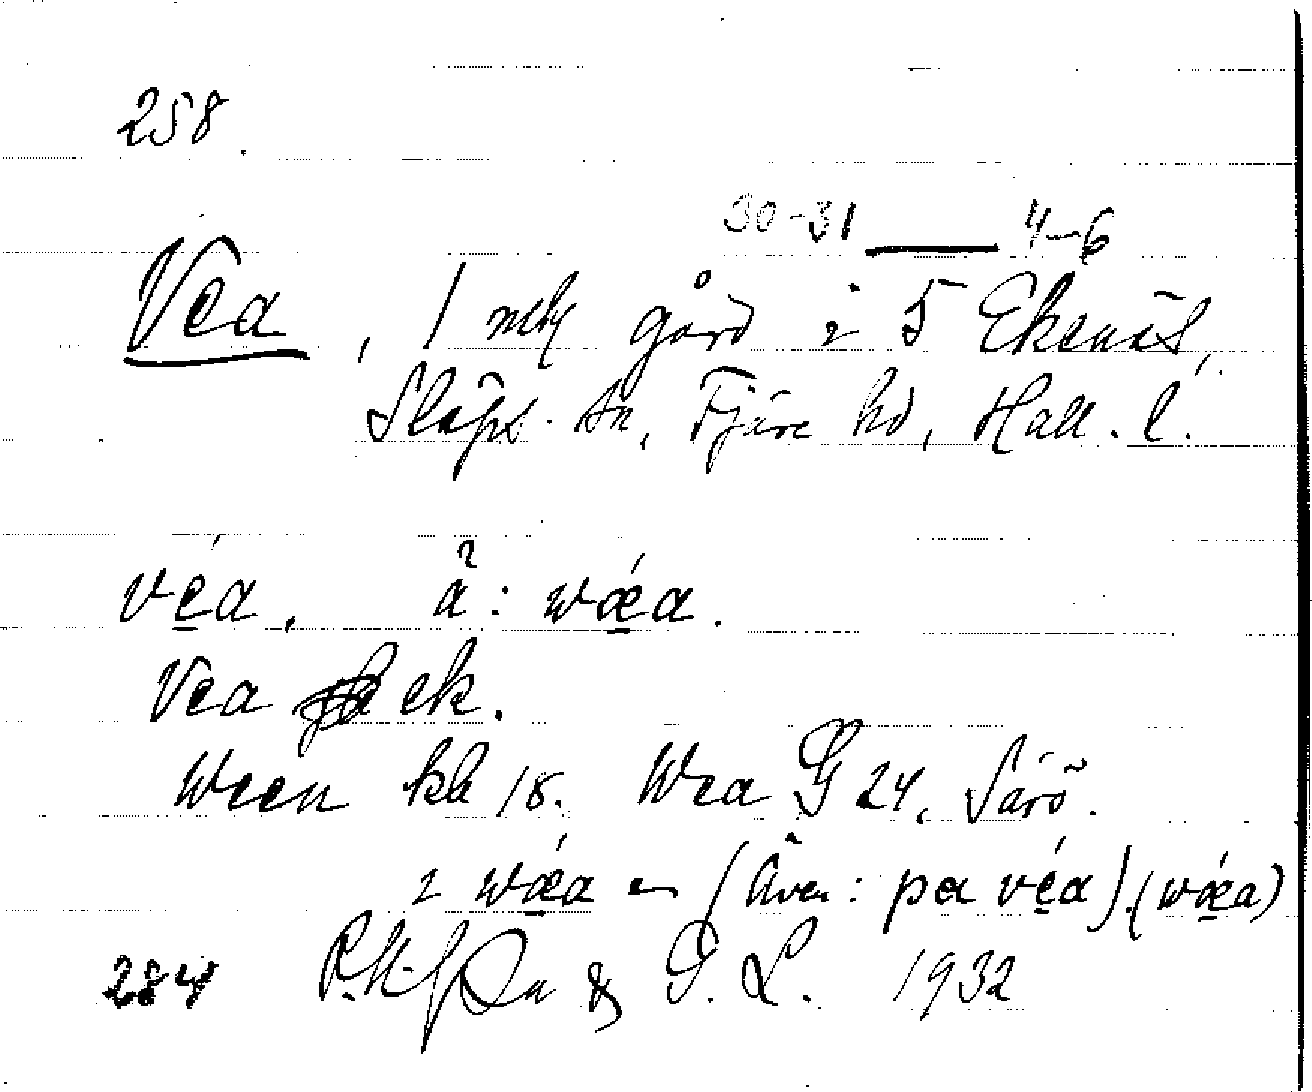 258.
30-31 — 4-6
Vea, 1 mtl gård i 5 Ekenäs,
Släps sn, Fjäre hd, Hall. l.
vé̲a, ä: wǽ̲a.
Vea ek.
Ween kb 18. Wea G 24, Särö.
i wǽ̲a (även: pa vé̲a).(wǽ̲a)
284 & G. L. 1932